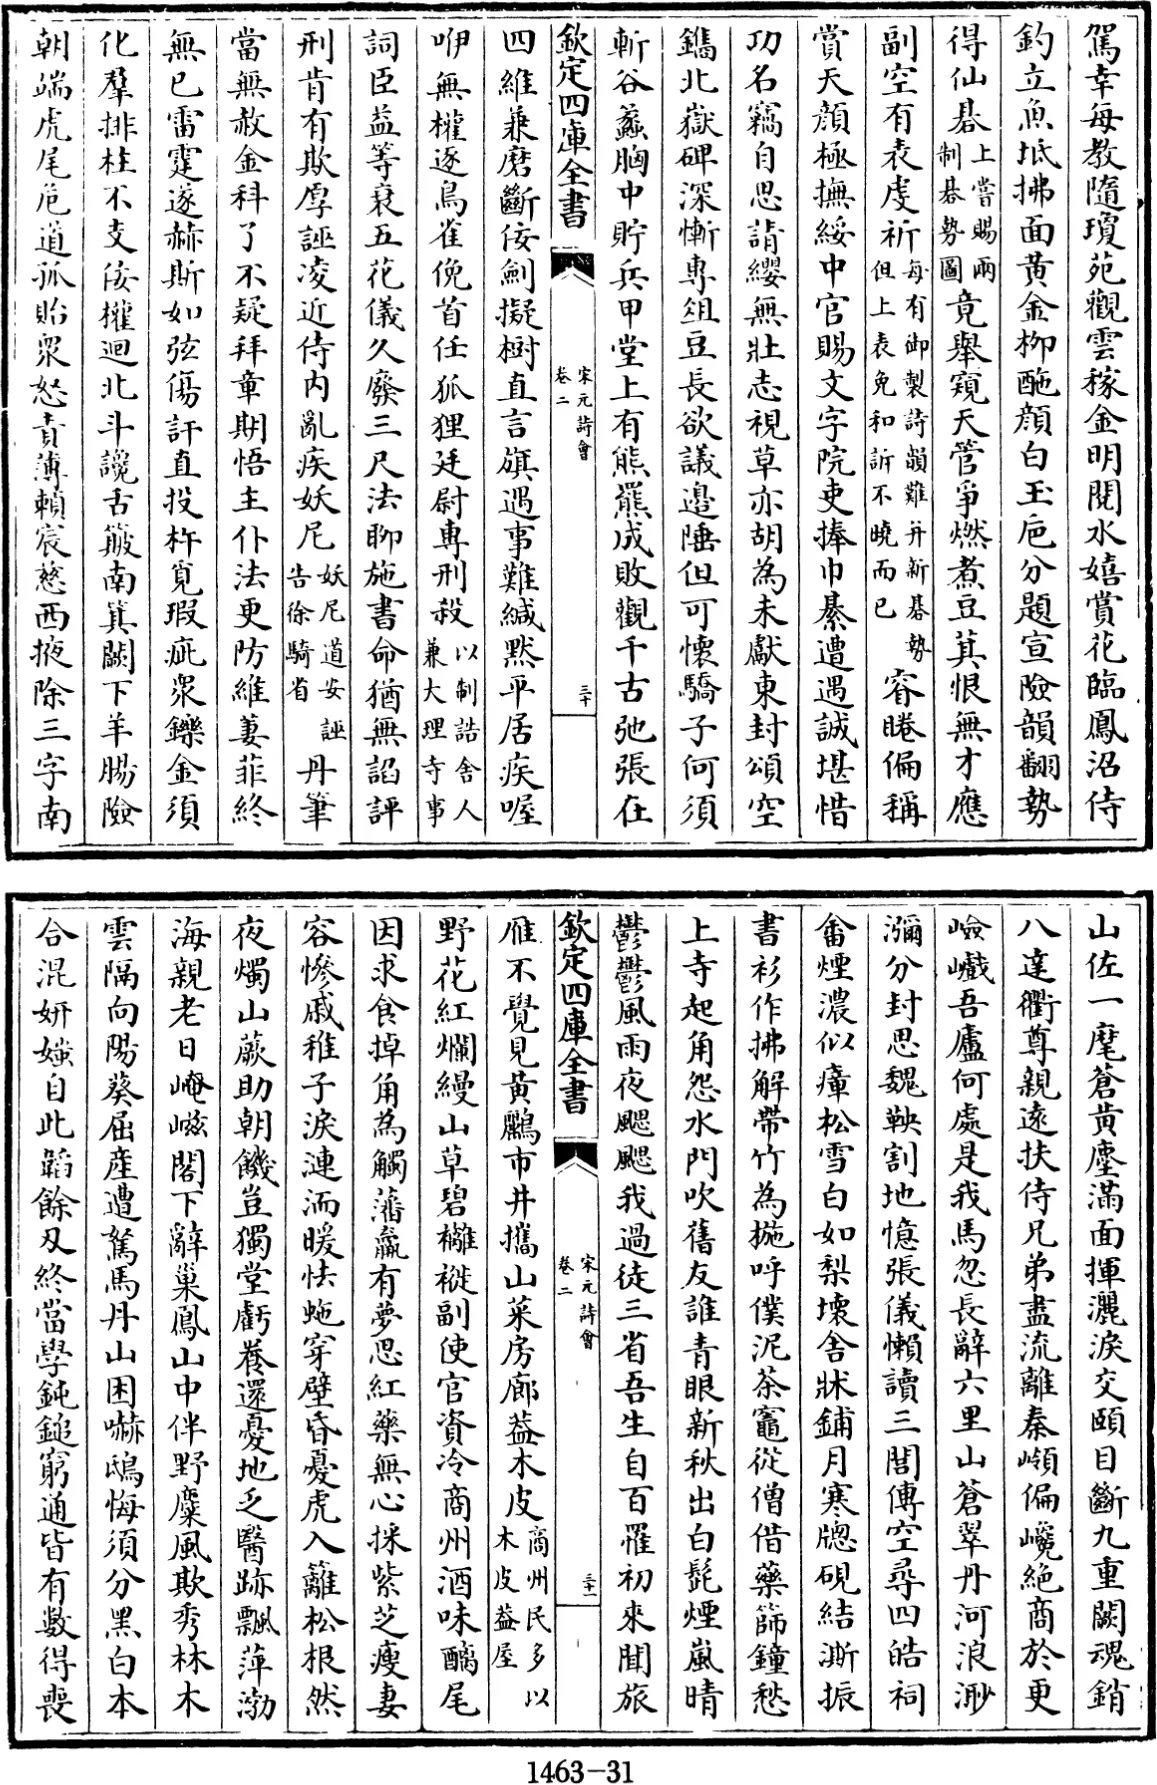 駕幸每教隨瓊苑觀雲稼金明閱水嬉賞花臨鳳沼侍
釣立魚坻拂面黄金柳酡顔白玉巵分題宣險韻翻勢
得仙棊上嘗賜兩制棊勢圖竟舉窺天管爭燃煮豆萁恨無才應
副空有表虔祈每有御製詩韻難并新棊勢但上表免和訴不曉而已睿睠偏稱
賞天顔極撫綏中官賜文字院吏捧巾綦遭遇誠堪惜
功名竊自思請纓無壯志視草亦胡為未獻東封頌空
鐫北嶽碑深慚專俎豆長欲議邊陲但可懷驕子何須
斬谷蠡胸中貯兵甲堂上有熊羆成敗觀千古弛張在
欽定四庫全書 宋元詩會 卷二 三十
四維兼磨斷佞劍擬樹直言旗遇事難緘黙平居疾喔
咿無權逐鳥雀俛首任狐狸廷尉專刑殺以制誥舍人兼大理寺事
詞臣益等衰五花儀久廢三尺法聊施書命猶無諂評
刑肯有欺厚誣凌近侍内亂疾妖尼妖尼道安誣告徐騎省丹筆
當無赦金科了不疑拜章期悟主仆法更防維萋菲終
無已雷霆遂赫斯如弦傷訐直投杼覓瑕疵衆鑠金須
化羣排柱不支佞權迴北斗讒舌簸南箕闕下羊腸險
朝端虎尾危道孤貽衆怒責薄賴宸慈西掖除三字南
山佐一麾蒼黄塵滿面揮灑淚交頤目斷九重闕魂銷
八達衢尊親遠扶侍兄弟盡流離秦嶺偏巉絶商於更
嶮巇吾廬何處是我馬忽長辭六里山蒼翠丹河浪渺
瀰分封思魏鞅割地憶張儀懶讀三閭傳空尋四皓祠
畬煙濃似瘴松雪白如梨壞舍牀鋪月寒牕硯結澌振
書衫作拂解帶竹為椸呼僕泥茶竈從僧借藥篩鐘愁
上寺起角怨水門吹舊友誰青眼新秋出白髭煙嵐晴
鬱鬱風雨夜颸颸我過徒三省吾生自百罹初來聞旅
欽定四庫全書 宋元詩會 卷二 三十一
雁不覺見黄鸝市井攜山菜房廊葢木皮商州民多以木皮葢屋
野花紅爛縵山草碧襳褷副使官資冷商州酒味醨尾
因求食掉角為觸藩羸有夢思紅藥無心採紫芝瘦妻
容慘戚稚子淚漣洏暖怯蚰穿壁昏憂虎入籬松根然
夜燭山蕨助朝饑豈獨堂虧養還憂地乏醫跡飄萍渤
海親老日崦嵫閣下辭巢鳳山中伴野麋風欺秀林木
雲隔向陽葵屈產遭駑馬丹山困嚇鴟悔須分黑白本
合混妍媸自此韜餘刃終當學鈍鎚窮通皆有數得喪
1463-31